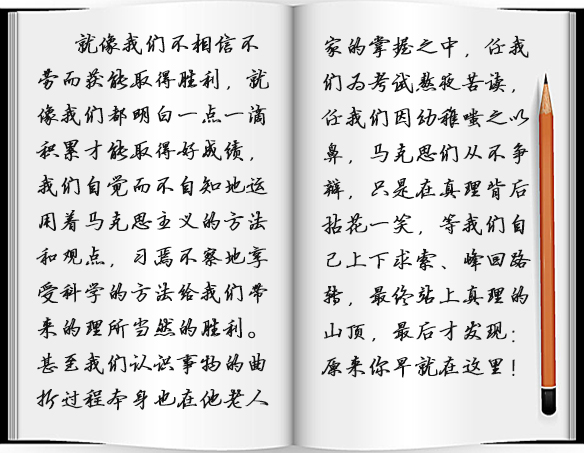 就像我们不相信不
劳而获能取得胜利，就
像我们都明白一点一滴
积累才能取得好成绩，
我们自觉而不自知地运
用着马克思主义的方法
和观点，习焉不察地享
受科学的方法给我们带
来的理所当然的胜利。
甚至我们认识事物的曲
折过程本身也在他老人
家的掌握之中，任我
们为考试熬夜苦读，
任我们因幼稚嗤之以
鼻，马克思们从不争
辩，只是在真理背后
拈花一笑，等我们自
己上下求索、峰回路
转，最终站上真理的
山顶，最后才发现：
原来你早就在这里！